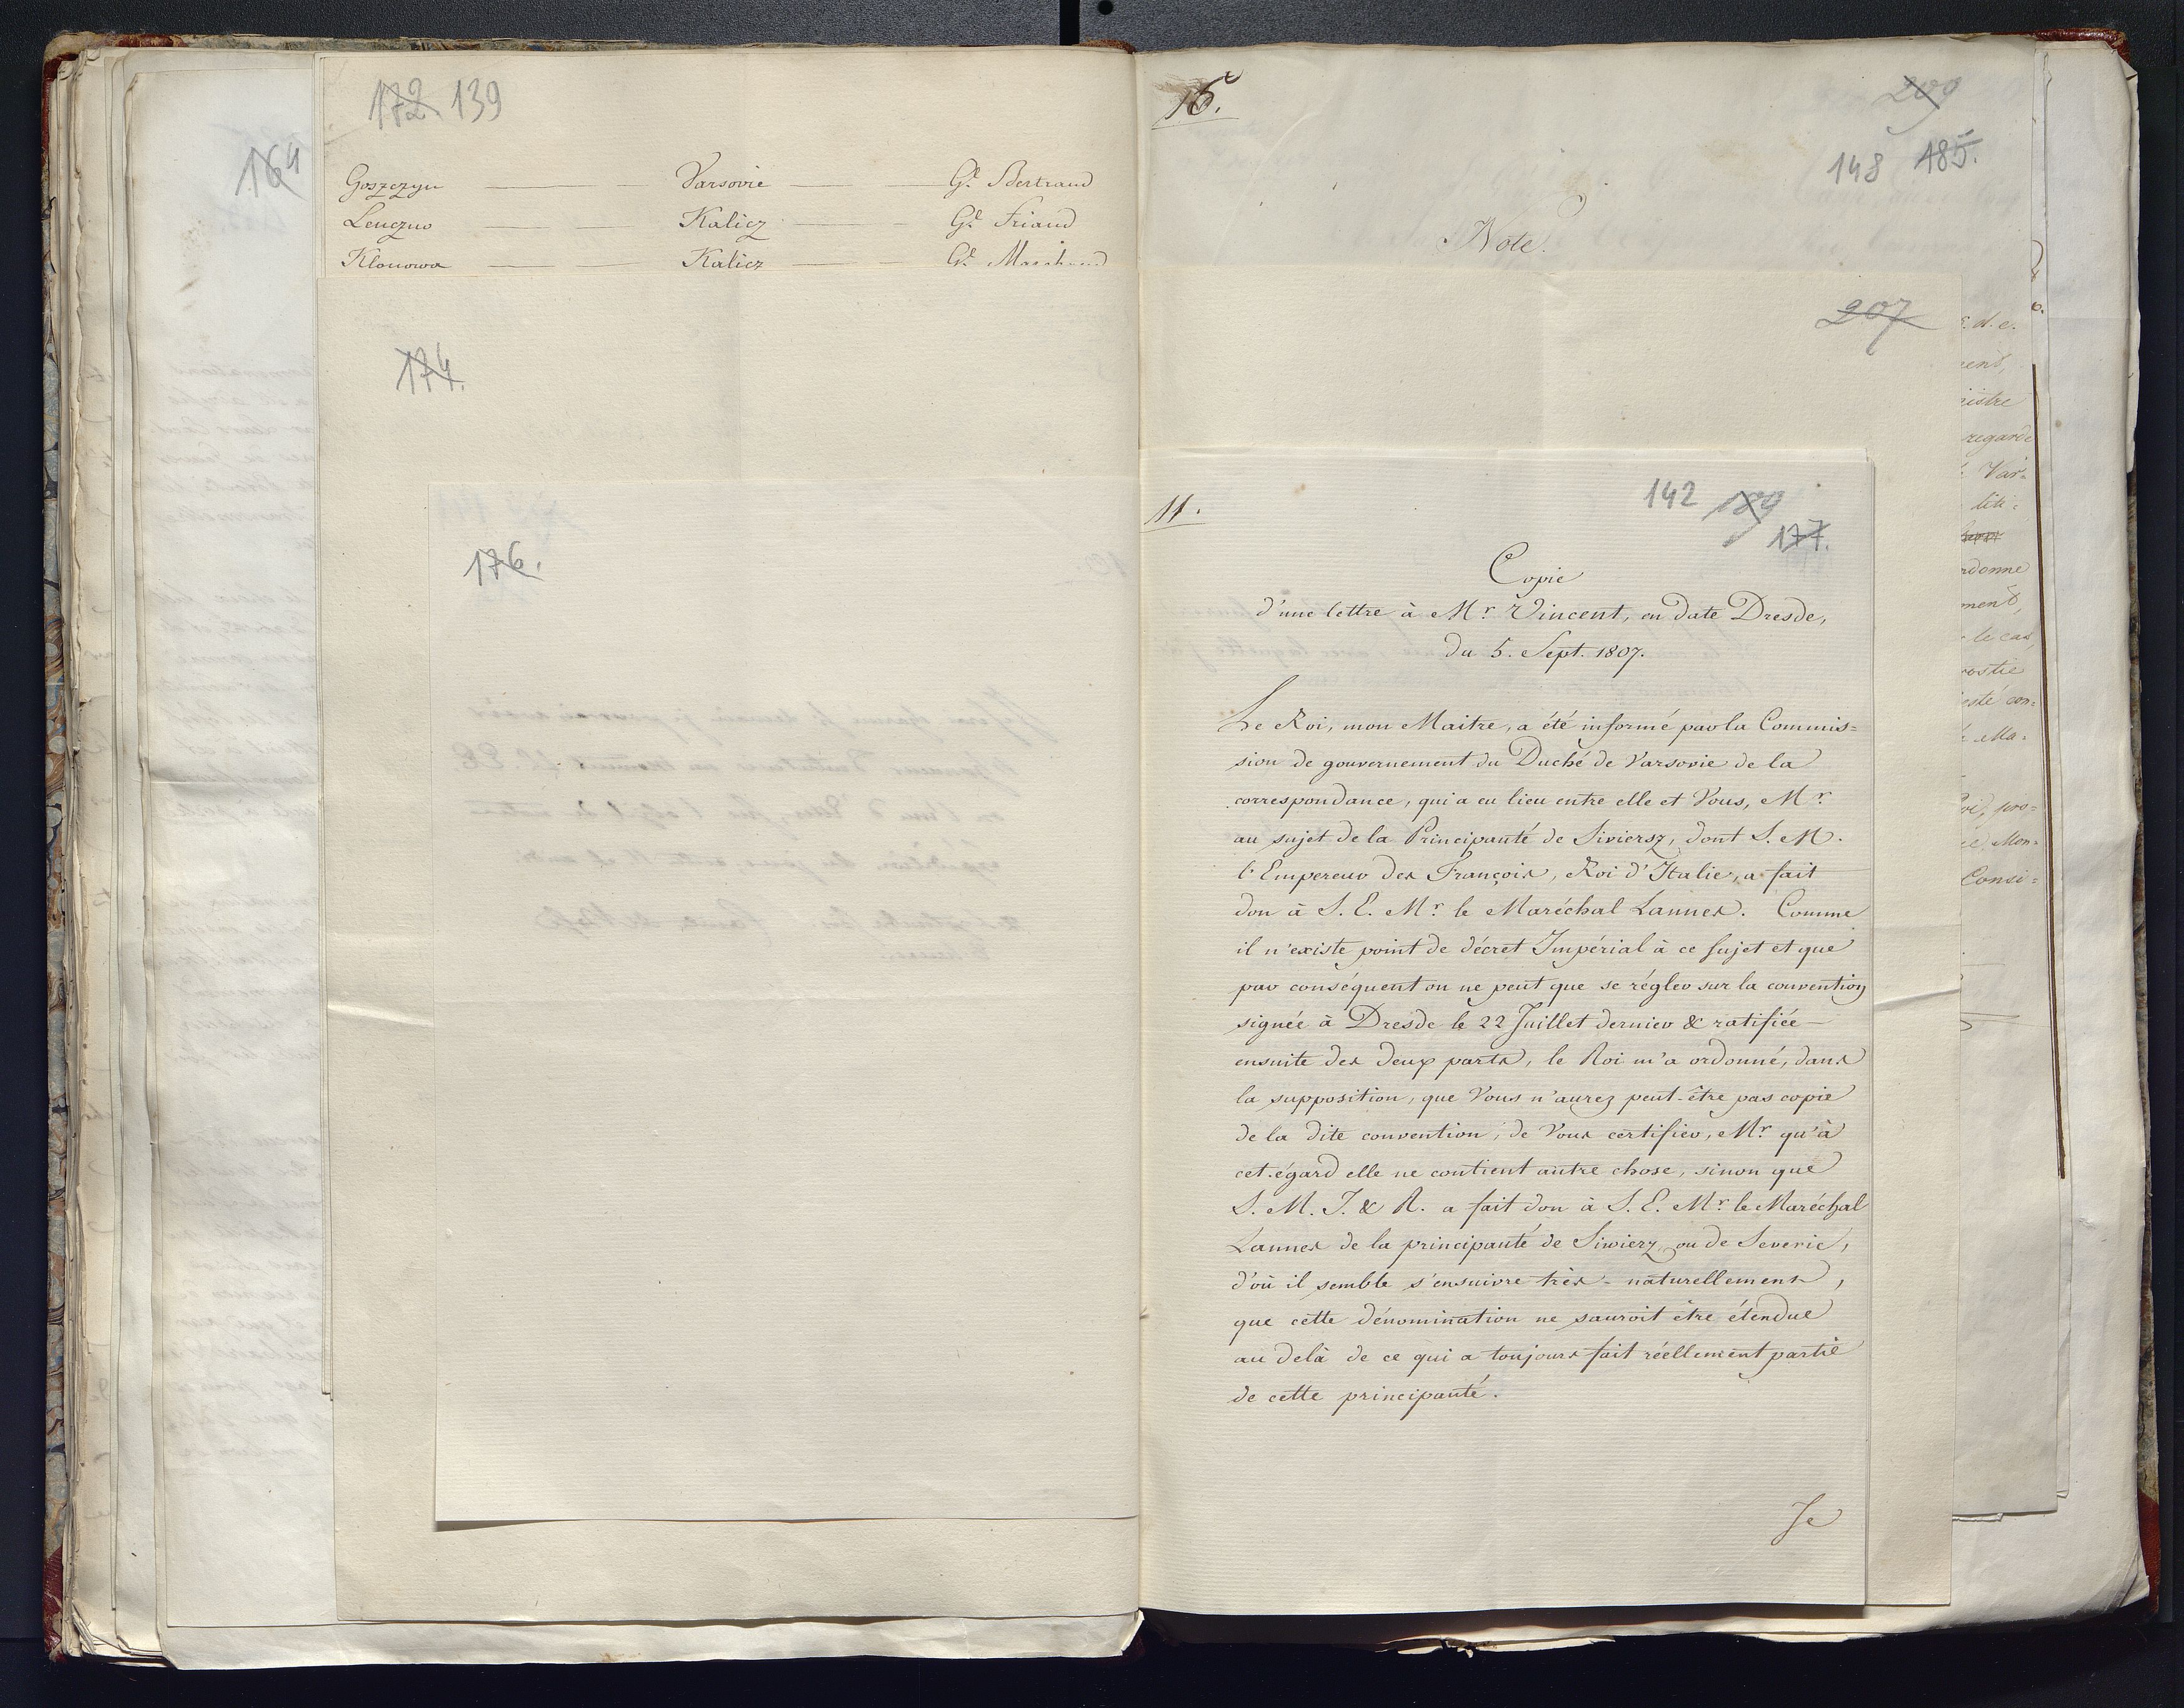 172 139
164
Goszczyn — Varsovie — Gl. Bertrand
Lenczno — Kalicz — Gl. Friand
Klonowa — Kalicz — Gl. Marchand
174.
176.
15.
209
148 185.
Note.
207
s. d. e.
istre
regarde
Var-
rdonne
ment,
le cas,
esté con-
Ma-
Mon-
Consi=
11.
142 189
177.
Copie
d'une lettre à Mr. Vincent, en date Dresde,
du 5. Sept. 1807.
Le Roi, mon Maitre, a été informé par la Commis=
sion de gouvernement du Duché de Varsovie de la
correspondance, qui a eu lieu entre elle et Vous, Mr.
au sujet de la Principauté de Siviersz, dont S. M.
l'Empereur des François, Roi d'Italie, a fait
don à S. E. Mr. le Maréchal Lannes. Comme
il n'existe point de décret Impérial à ce sujet et que
par conséquent on ne peut que se régler sur la convention
signée à Dresde le 22 Juillet dernier & ratifiée
ensuite des deux parts, le Roi m'a ordonné, dans
la supposition, que Vous n'aurez peut-être pas copie
de la dite convention, de Vous certifier, Mr. qu'à
cet égard elle ne contient autre chose, sinon que
S. M. I. & R. a fait don à S. E. Mr. le Maréchal
Lannes de la principauté de Siwierz ou de Severie,
d'où il semble s'ensuivre très-naturellement,
que cette dénomination ne sauroit être étendue
au delà de ce qui a toujours fait réellement partie
de cette principauté.
Je